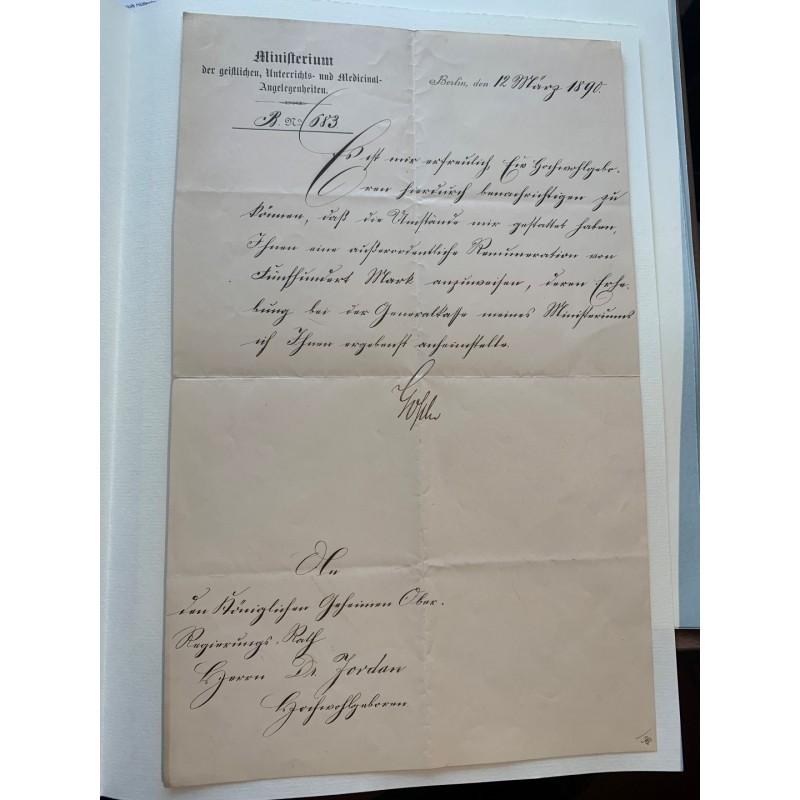 Ministerium
der geistlichen, Unterrichts- und Medicinal-
Angelegenheiten.
B. No 683
Berlin, den 12 März 1890.
Es ist mir erfreulich, Ew. Hochwohlgebo-
ren hierdurch benachrichtigen zu
können, daß die Umstände mir gestattet haben,
Ihnen eine außerordentliche Remuneration von
Fünfhundert Mark anzuweisen, deren Erhe-
bung bei der Generalkasse meines Ministeriums
ich Ihnen ergebenst anheimstelle.
Goßler
An
den Königlichen Geheimen Ober-
Regierungs-Rath
Herrn Dr. Jordan
Hochwohlgeboren